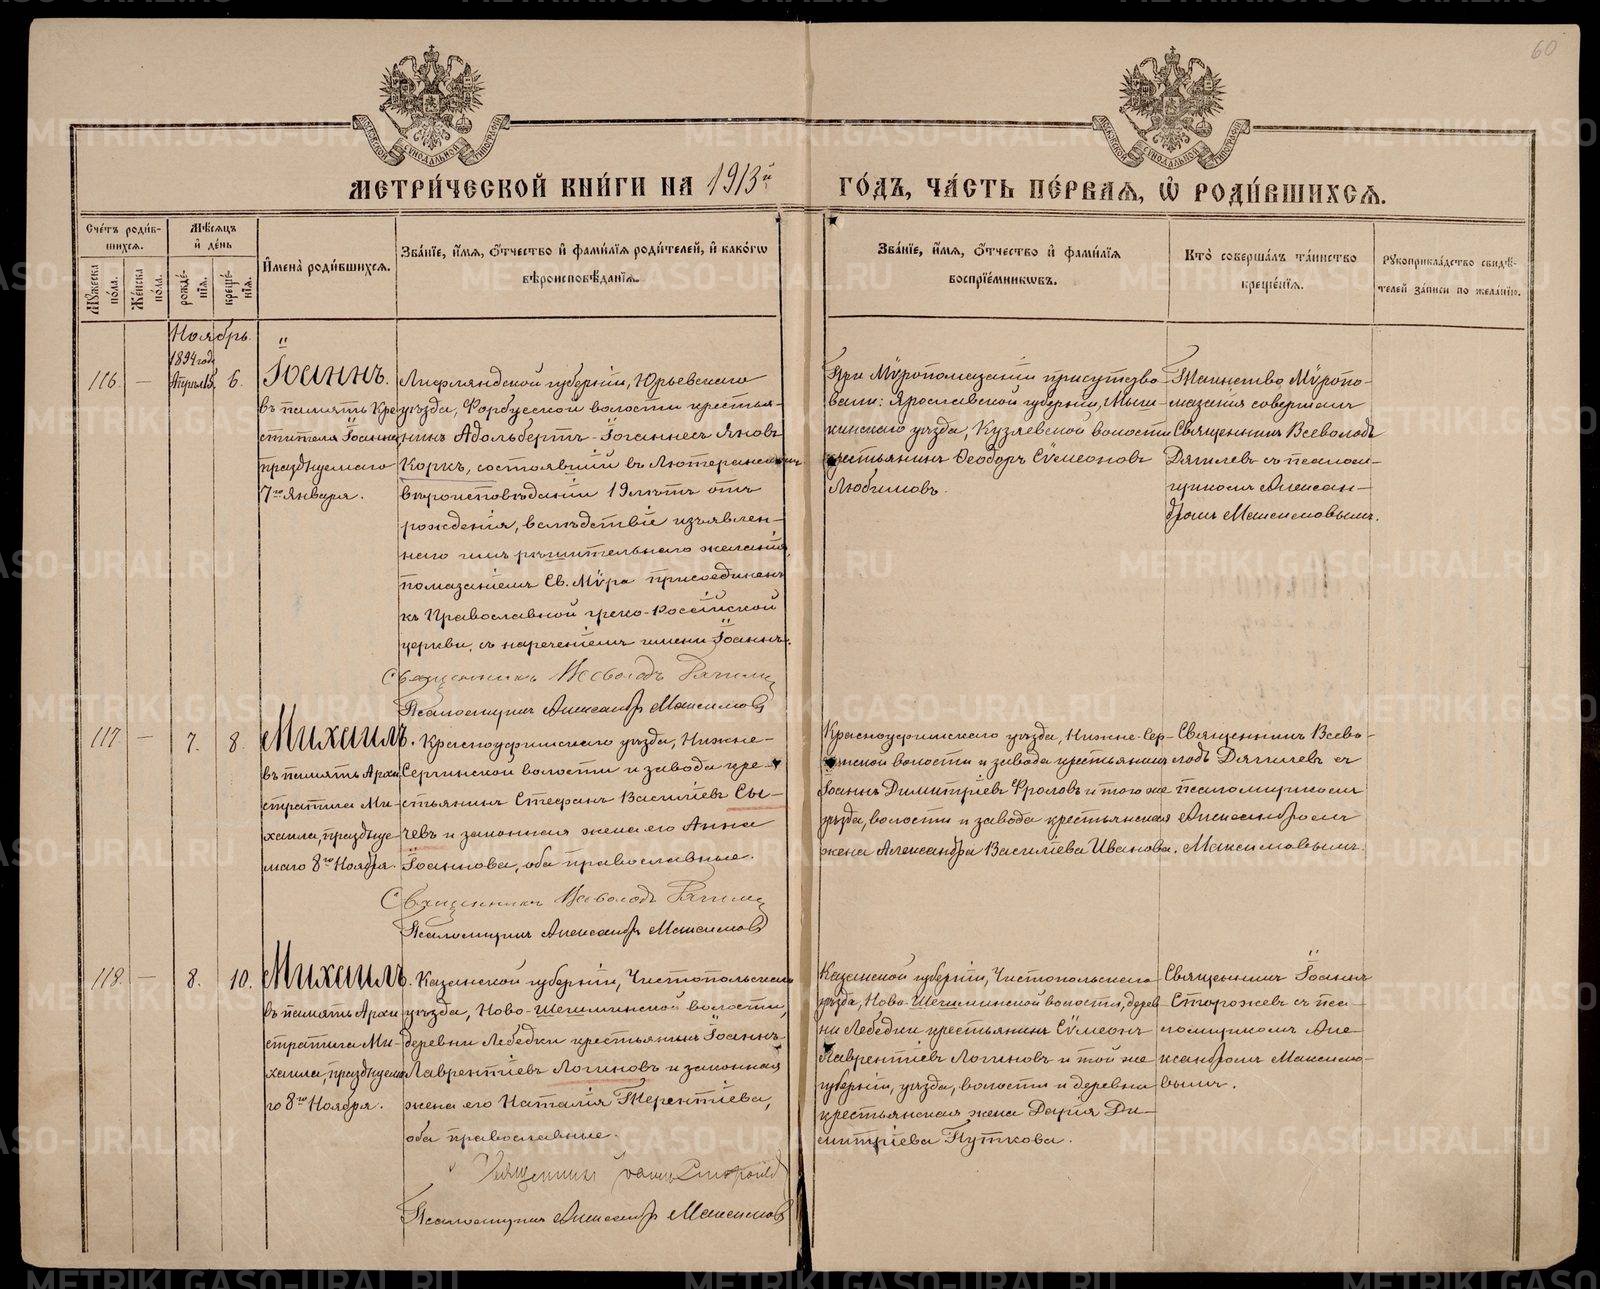 60
МЕТРИ́ЧЕСКОЙ КНИ́ГИ НА 1913й ГО́ДЪ, ЧА́СТЬ ПЕ́РВАЯ, Ѡ҆ РОДИ́ВШИХСЯ.
Сче́тъ роди́вшихся.
Му́жеска по́ла.
Же́нска по́ла.
Мѣ́сяцъ и҆ де́нь
рожде́нїя.
креще́нїя.
И҆мена̀ роди́вшихся.
Зва́нїе, и҆́мя, ѻ҆́тчество и҆ фами́лїя роди́телей, и҆ како́гѡ
вѣроисповѣ́данїя.
Зва́нїе, и҆́мя, ѻ҆́тчество и҆ фами́лїя
воспрїе́мникѡвъ.
Кто̀ соверша́лъ та́инство
креще́нїя.
Рукоприкла́дство свидѣ́-
телей за́писи по жела́нїю.
Ноябрь.
116. —
1894 года
Апрѣля 15.
6.
Іоаннъ.
въ память Кре-
стителя Іоанна,
празднуемаго
7го Января.
Лифляндской губерніи, Юрьевскаго
уѣзда, Форбусской волости крестья-
нинъ Адольбертъ-Іоганнесъ Яновъ
Коркъ, состоявшій въ Лютеранскомъ
вѣроисповѣданіи 19 лѣтъ отъ
рожденія, вслѣдствіе изъявлен-
наго имъ рѣшительнаго желанія,
помазаніемъ Св. Мѵра присоединенъ
къ Православной греко-Россійской
церкви, съ нареченіемъ имени Іоаннъ.
Священникъ Всеволодъ Дягилевъ
Псаломщикъ Александръ Максимовъ
При Мѵропомазаніи присутство-
вали: Ярославской губерніи, Мыш-
кинскаго уѣзда, Кузяевской волости
крестьянинъ Ѳеодоръ Сѵмеоновъ
Любимовъ.
Таинство Мѵропо-
мазанія совершилъ
Священникъ Всеволодъ
Дягилевъ съ псалом-
щикомъ Алексан-
дромъ Максимовымъ.
117. —
7.
8.
Михаилъ.
въ память Архи-
стратига Ми-
хаила, праздну-
емаго 8го Ноября.
Красноуфимскаго уѣзда, Нижне-
Сергинской волости и завода кре-
стьянинъ Стефанъ Василіевъ Сы-
чевъ и законная жена его Анна
Іоаннова, оба православные.
Священникъ Всеволодъ Дягилевъ
Псаломщикъ Александръ Максимовъ
Красноуфимскаго уѣзда, Нижне-Сер-
гинской волости и завода крестьянинъ
Іоаннъ Димитріевъ Фроловъ и того же
уѣзда, волости и завода крестьянская
жена Александра Василіева Иванова.
Священникъ Всево-
лодъ Дягилевъ съ
псаломщикомъ
Александромъ
Максимовымъ.
118. —
8.
10.
Михаилъ.
въ память Архи-
стратига Ми-
хаила, празднуема-
го 8го Ноября.
Казанской губерніи, Чистопольскаго
уѣзда, Ново-Шешминской волости,
деревни Лебедки крестьянинъ Іоаннъ
Лаврентіевъ Логиновъ и законная
жена его Наталія Терентіева,
оба православные.
Священникъ Іоаннъ Сторожевъ
Псаломщикъ Александръ Максимовъ
Казанской губерніи, Чистопольскаго
уѣзда, Ново-Шешминской волости, дерев-
ни Лебедки крестьянинъ Сѵмеонъ
Лаврентіевъ Логиновъ и той же
губерніи, уѣзда, волости и деревни
крестьянская жена Дарія Ди-
митріева Путкова.
Священникъ Іоаннъ
Сторожевъ съ пса-
ломщикомъ Але-
ксандромъ Максимо-
вымъ.